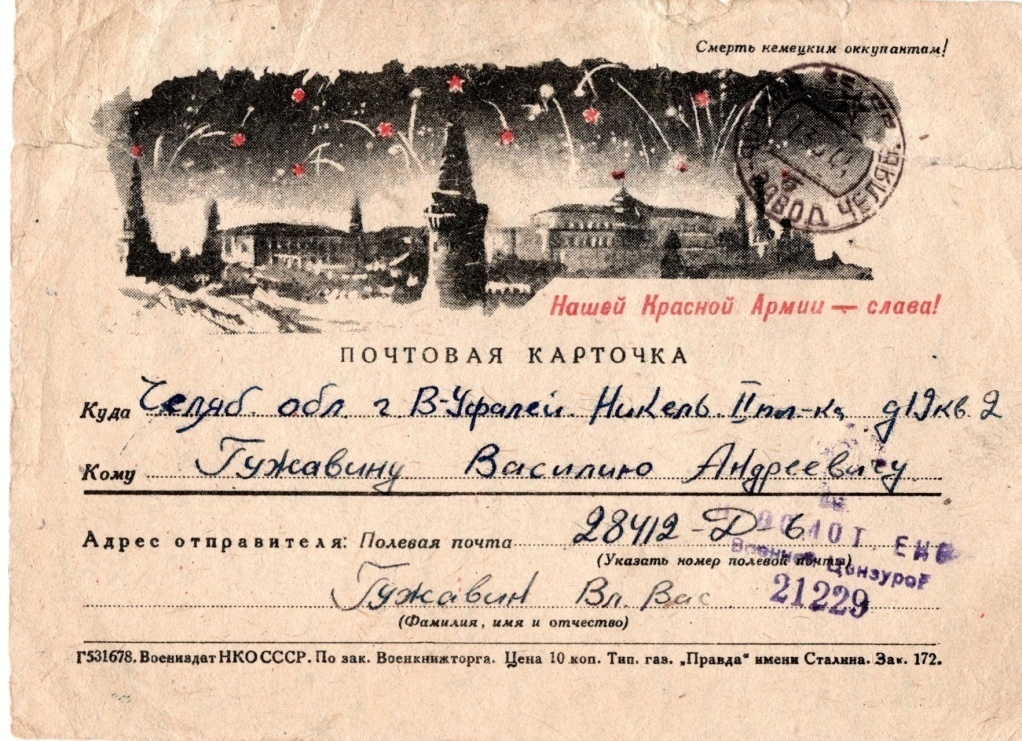 Смерть немецким оккупантам!
ЗАВОД ЧЕЛЯБ.
Нашей Красной Армии — слава!
ПОЧТОВАЯ КАРТОЧКА
Куда Челяб. обл г В-Уфалей. Никель. II пл-ка д 19 кв 2
Кому Гужавину Василию Андреевичу
Адрес отправителя: Полевая почта 28412-Д-6
(Указать номер полевой почты)
Военной Цензурой
21229
Гужавин Вл. Вас
(Фамилия, имя и отчество)
Г531678. Воениздат НКО СССР. По зак. Военкнижторга. Цена 10 коп. Тип. газ. „Правда“ имени Сталина. Зак. 172.